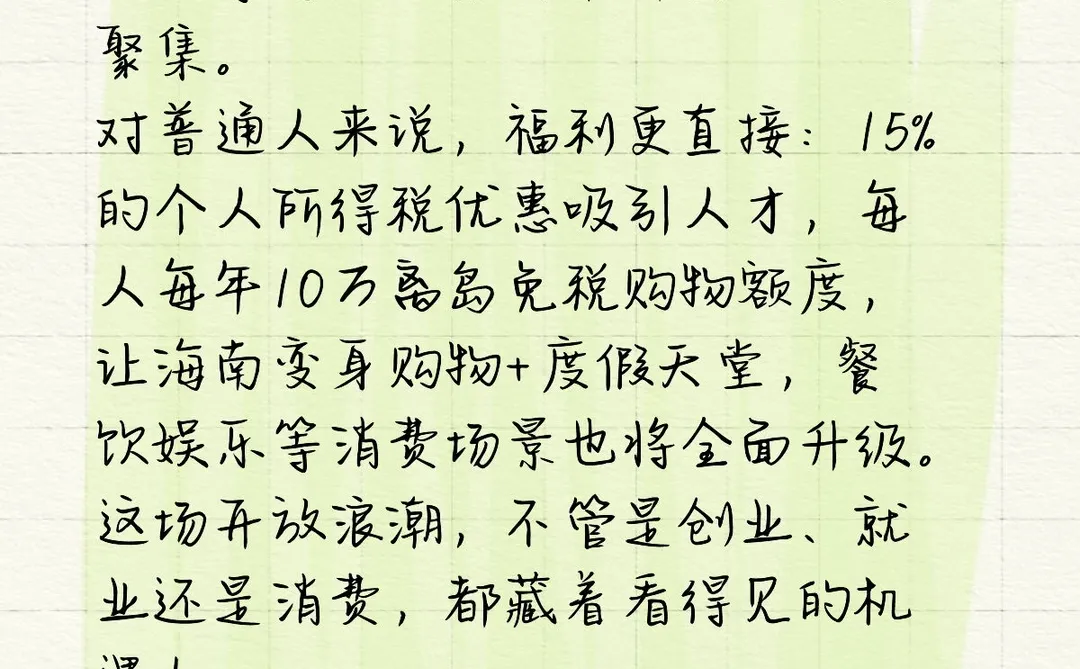 聚集。
对普通人来说，福利更直接：15%
的个人所得税优惠吸引人才，每
人每年10万离岛免税购物额度，
让海南变身购物+度假天堂，餐
饮娱乐等消费场景也将全面升级。
这场开放浪潮，不管是创业、就
业还是消费，都藏着看得见的机